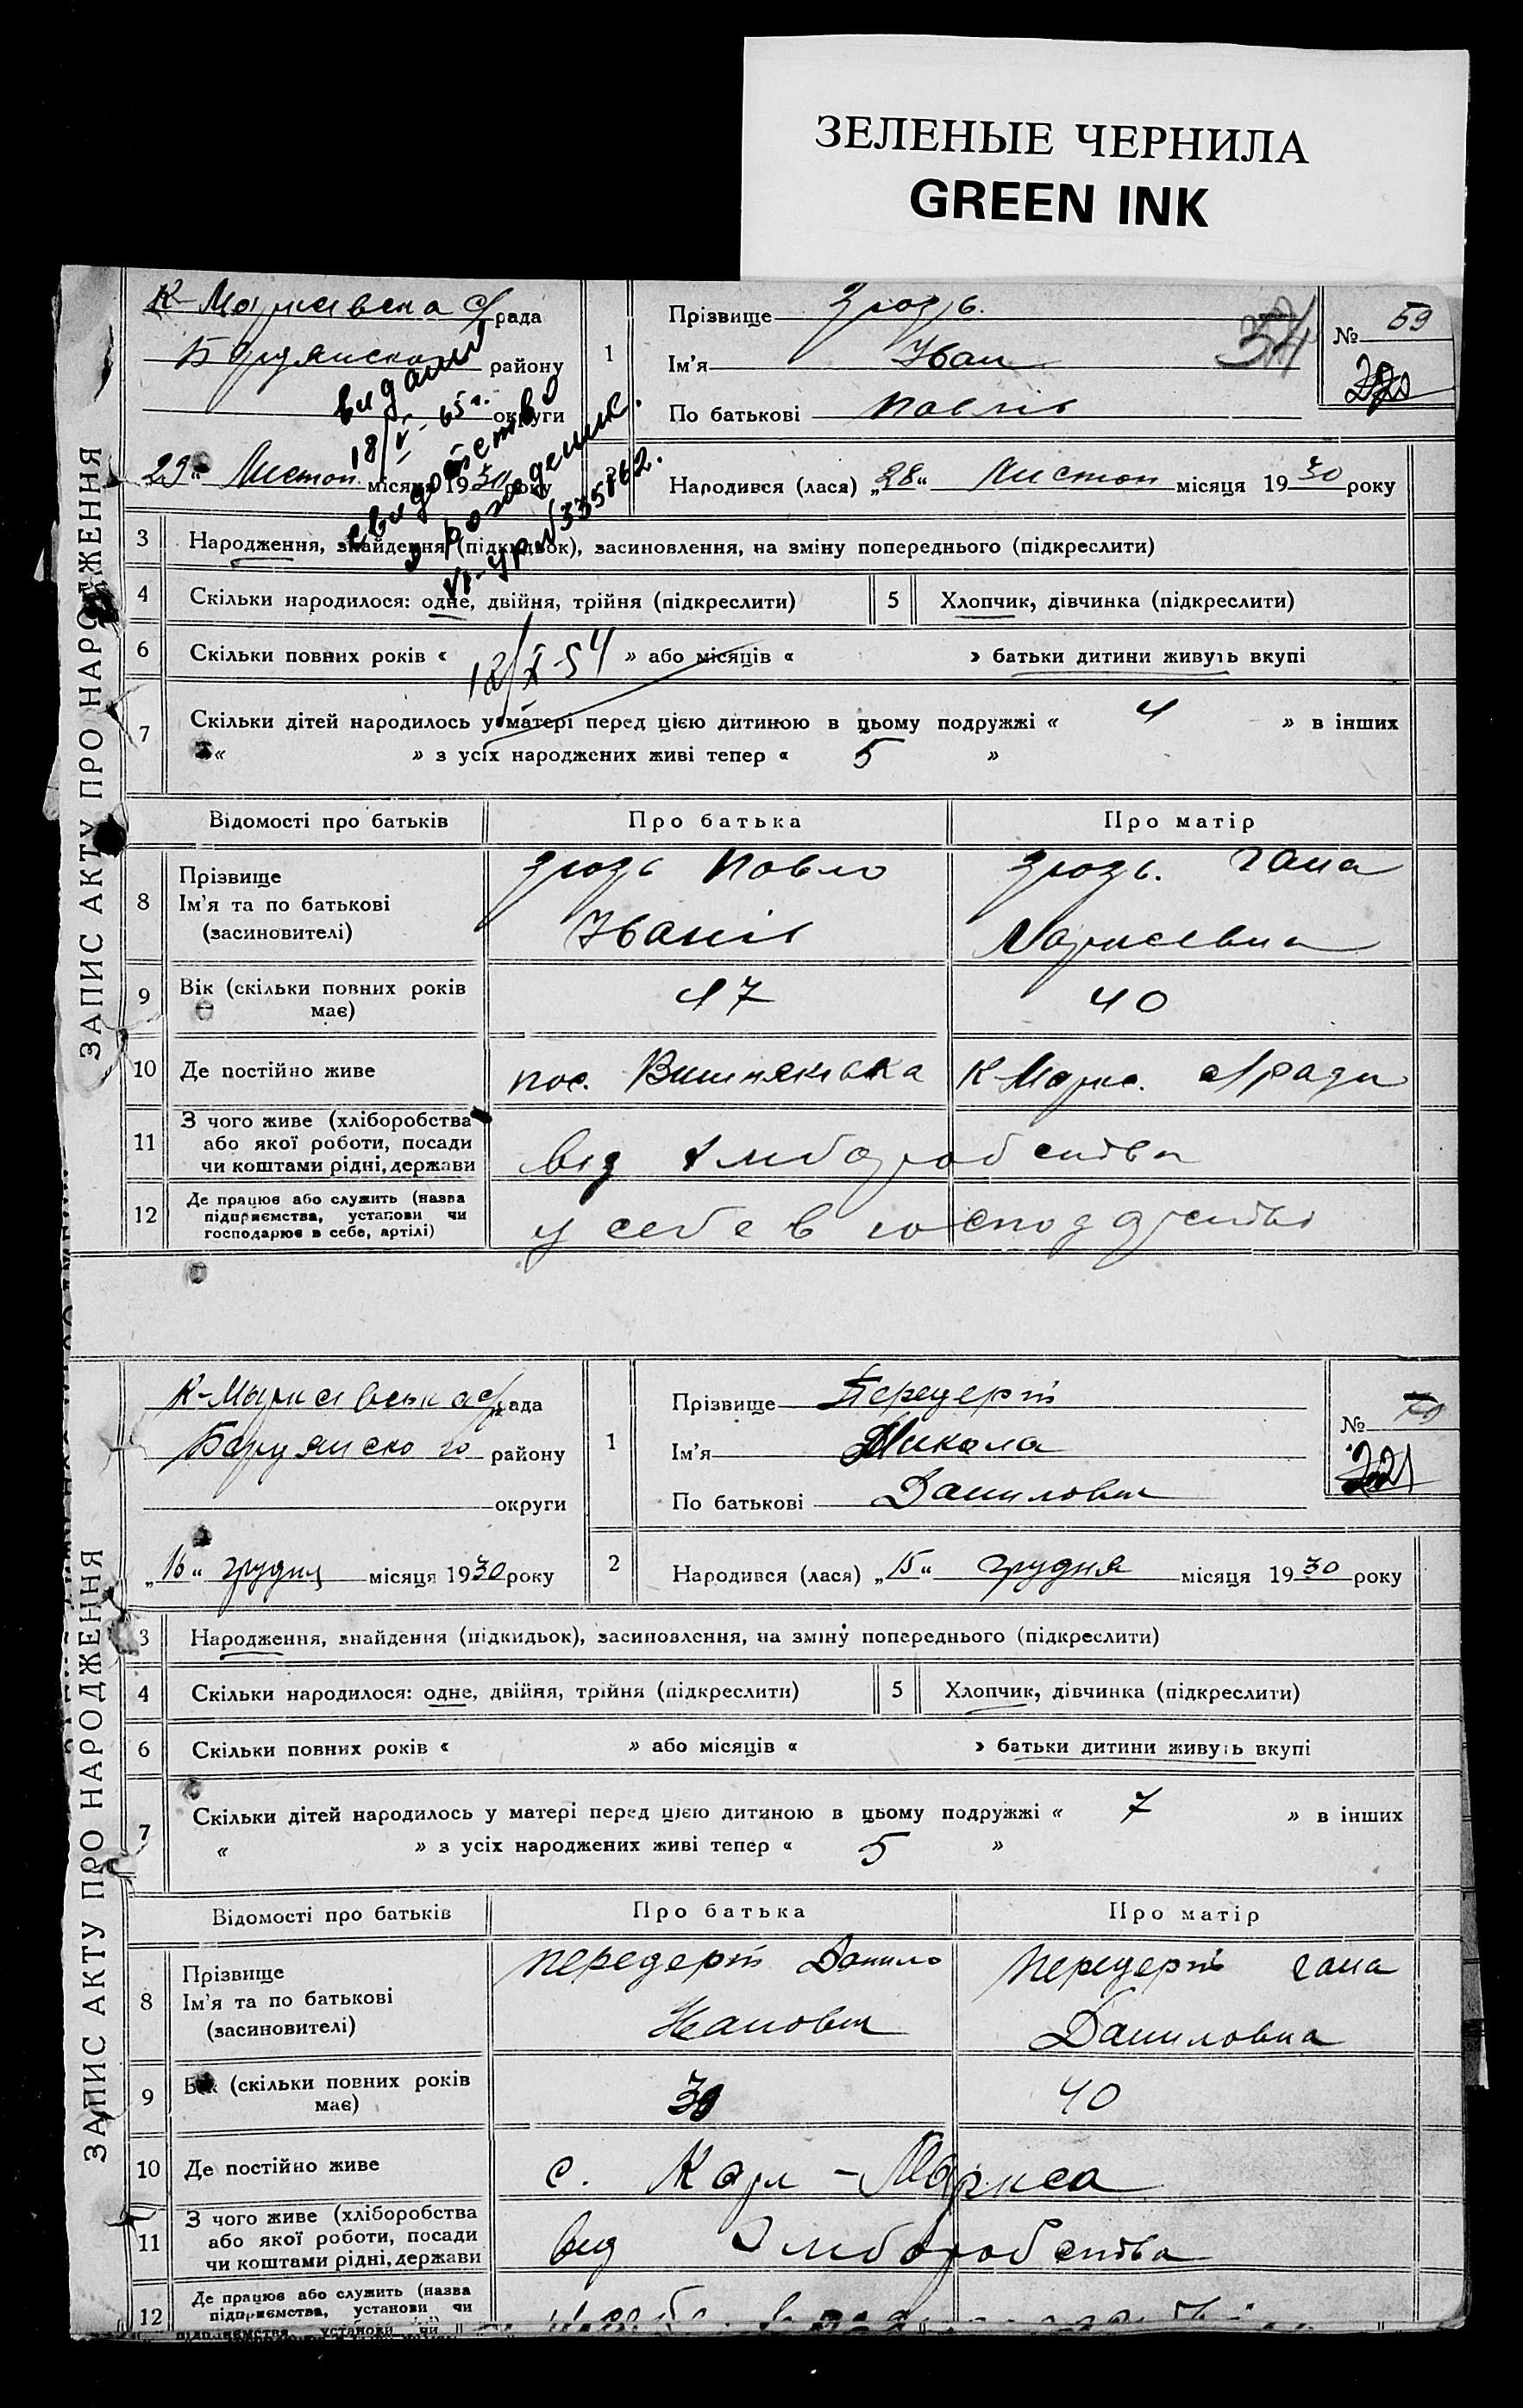 ЗЕЛЕНЫЕ ЧЕРНИЛА
GREEN INK
ЗАПИС АКТУ ПРО НАРОДЖЕННЯ
К-Марксівська с/рада
району
округи
29 Листоп місяця 1930 року
видани
18/V-65 г.
свидотство
о рождение
№335862.
1
Прізвище
Ім'я Іван
По батькові Павлів
№ 59
54
Народився (лася) „28“ Листоп місяця 1930 року
3 Народження, знайдення (підкидьок), засиновлення, на зміну попереднього (підкреслити)
4 Скільки народилося: одне, двійня, трійня (підкреслити) 5 Хлопчик, дівчинка (підкреслити)
6 Скільки повних років « » або місяців « » батьки дитини живуть вкупі
12/X-54
7 Скільки дітей народилось у матері перед цією дитиною в цьому подружжі « 4 » в інших
« » з усіх народжених живі тепер « 5 »
Відомості про батьків Про батька Про матір
8 Прізвище
Ім'я та по батькові
(засиновителі)
Павло
Іванів
Гана
9 Вік (скільки повних років має) 47 40
10 Де постійно живе пос. К-Маркс. с/ради
11 З чого живе (хліборобства
або якої роботи, посади
чи коштами рідні, держави
від хліборобства
12 Де працює або служить (назва
підприємства, установи чи
господарює в себе, артілі)
у себе в господарстві
ЗАПИС АКТУ ПРО НАРОДЖЕННЯ
К-Марксівська с/рада
району
округи
„16“ грудня місяця 1930 року
1
Прізвище Передерій
Ім'я Микола
По батькові Данилович
№
221
2 Народився (лася) „15“ грудня місяця 1930 року
3 Народження, знайдення (підкидьок), засиновлення, на зміну попереднього (підкреслити)
4 Скільки народилося: одне, двійня, трійня (підкреслити) 5 Хлопчик, дівчинка (підкреслити)
6 Скільки повних років « » або місяців « » батьки дитини живуть вкупі
7 Скільки дітей народилось у матері перед цією дитиною в цьому подружжі « 7 » в інших
« » з усіх народжених живі тепер « 5 »
Відомості про батьків Про батька Про матір
8 Прізвище
Ім'я та по батькові
(засиновителі)
Передерій Данило
Передерій Гана
Даниловна
9 Вік (скільки повних років має) 40
10 Де постійно живе с. Карл-Маркса
11 З чого живе (хліборобства
або якої роботи, посади
чи коштами рідні, держави
від хліборобства
12 Де працює або служить (назва
підприємства, установи чи